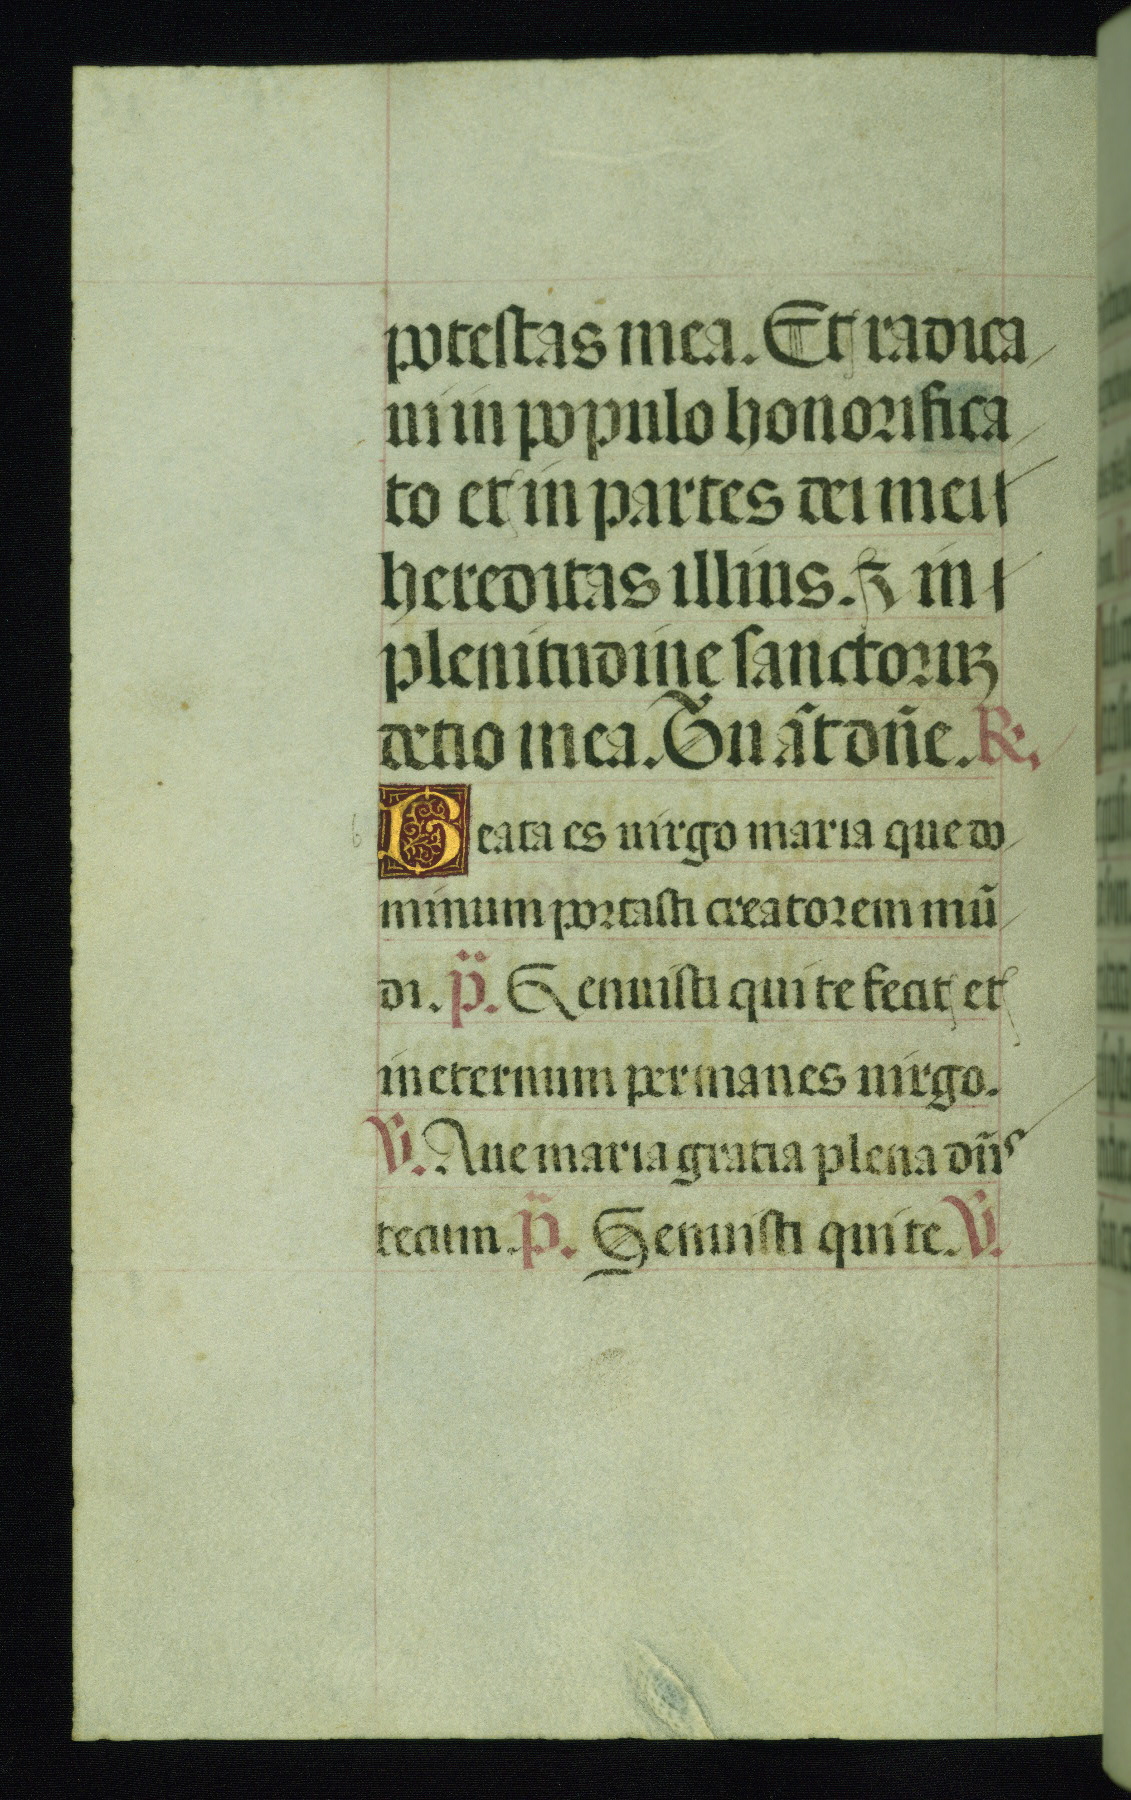 potestas mea. Et radica
ui in populo honorifica
to et in partes dei mei
hereditas illius. ⁊ in
plenitudine sanctoruꝝ
detio mea. Tu āt dñe. R.
Beata es uirgo maria que do
minum portasti creatorem mū
di. p̈. Genuisti qui te fecit et
in eternum permanes uirgo.
V. Aue maria gratia plena dn̄s
tecum. p̈. Genuisti qui te. V.